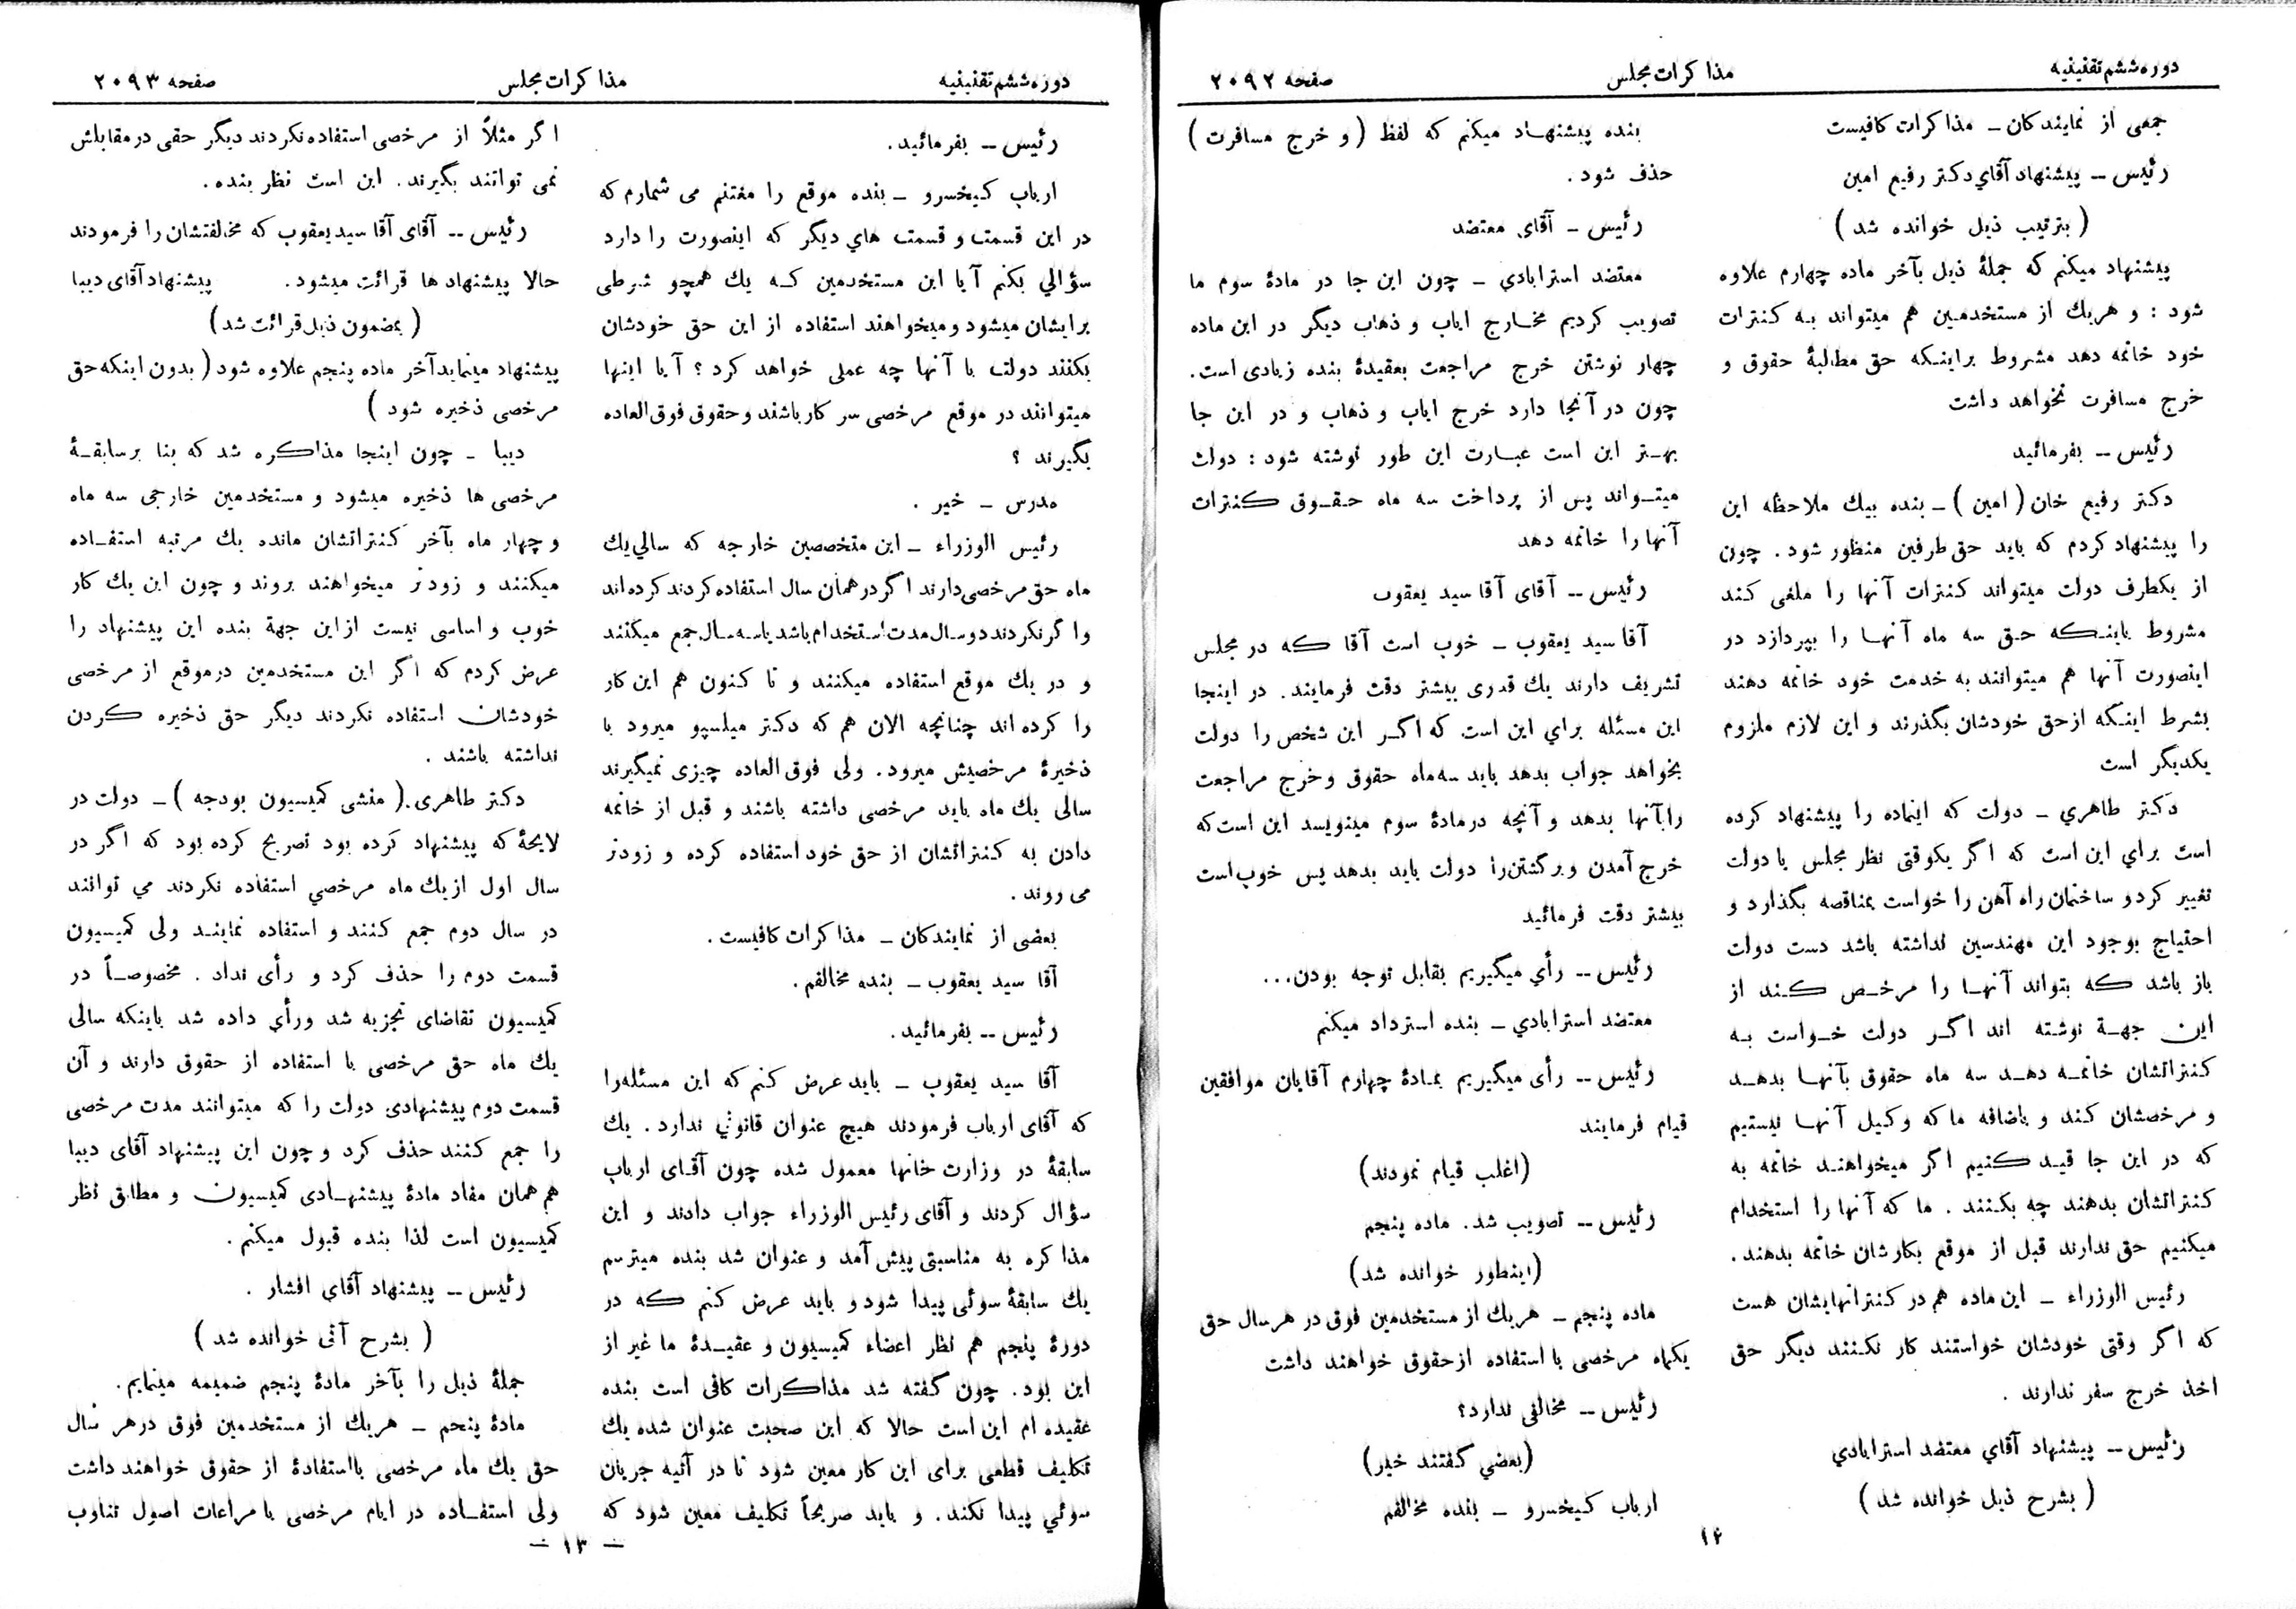 دوره ششم تقنینیه
مذاکرات مجلس
صفحه ۲۰۹۲
جمعی از نمایندکان ـ مذاکرات کافیست
رئیس ــ پیشنهاد آقای دکتر رفیع امین
( بترتیب ذیل خوانده شد )
پیشنهاد میکنم که جملهٔ ذیل بآخر ماده چهارم علاوه
شود : و هریك از مستخدمین هم میتواند به کنترات
خود خاتمه دهد مشروط براینکه حق مطالبهٔ حقوق و
خرج مسافرت نخواهد داشت
رئیس ــ بفرمائید
دکتر رفیع خان ( امین ) ـ بنده بیك ملاحظه این
را پیشنهاد کردم که باید حق طرفین منظور شود . چون
از یکطرف دولت میتواند کنترات آنها را ملغی کند
مشروط باینکه حق سه ماه آنها را بپردازد در
اینصورت آنها هم میتوانند به خدمت خود خاتمه دهند
بشرط اینکه ازحق خودشان بگذرند و این لازم ملزوم
یکدیگر است
دکتر طاهري ـ دولت که اینماده را پیشنهاد کرده
است براي این است که اگر یکوقتی نظر مجلس یا دولت
تغییر کرد و ساختمان راه آهن را خواست بمناقصه بگذارد و
احتیاج بوجود این مهندسین نداشته باشد دست دولت
باز باشد که بتواند آنها را مرخص کند از
این جهة نوشته اند اگر دولت خواست به
کنتراتشان خاتمه دهد سه ماه حقوق بآنها بدهد
و مرخصشان کند و باضافه ما که وکیل آنها نیستیم
که در این جا قید کنیم اگر میخواهند خاتمه به
کنتراتشان بدهند چه بکنند . ما که آنها را استخدام
میکنیم حق ندارند قبل از موقع بکارشان خاتمه بدهند .
رئیس الوزراء ـ این ماده هم در کنتراتهایشان هست
که اگر وقتی خودشان خواستند کار نکنند دیگر حق
اخذ خرج سفر ندارند .
رئیس ــ پیشنهاد آقاي معتضد استرابادي
( بشرح ذیل خوانده شد )
بنده پیشنهاد میکنم که لفظ ( و خرج مسافرت )
حذف شود .
رئیس ـ آقای معتضد
معتضد استرابادي ـ چون این جا در مادهٔ سوم ما
تصویب کردیم مخارج ایاب و ذهاب دیگر در این ماده
چهار نوشتن خرج مراجعت بعقیدهٔ بنده زیادی است.
چون در آنجا دارد خرج ایاب و ذهاب و در این جا
بهتر این است عبارت این طور نوشته شود : دولت
میتواند پس از پرداخت سه ماه حقوق کنترات
آنها را خاتمه دهد
رئیس ــ آقای آقا سید یعقوب
آقا سید یعقوب ـ خوب است آقا که در مجلس
تشریف دارند یك قدری بیشتر دقت فرمایند. در اینجا
این مسئله براي این است که اگر این شخص را دولت
بخواهد جواب بدهد باید سه ماه حقوق و خرج مراجعت
را بآنها بدهد و آنچه در مادهٔ سوم مینویسد این است که
خرج آمدن و برگشتن را دولت باید بدهد پس خوب است
بیشتر دقت فرمائید
رئیس ــ رأي میگیریم بقابل توجه بودن...
معتضد استرابادي ـ بنده استرداد میکنم
رئیس ــ رأی میگیریم بمادهٔ چهارم آقایان موافقین
قیام فرمایند
(اغلب قیام نمودند)
رئیس ــ تصویب شد. ماده پنجم
(اینطور خوانده شد)
ماده پنجم ـ هریك از مستخدمین فوق در هر سال حق
یکماه مرخصی با استفاده از حقوق خواهند داشت
رئیس ــ مخالفی ندارد؟
(بعضي گفتند خیر)
ارباب کیخسرو ـ بنده مخالفم
۱۲
دوره ششم تقنینیه
مذاکرات مجلس
صفحه ۲۰۹۳
رئیس ــ بفرمائید.
ارباب کیخسرو ـ بنده موقع را مغتنم می شمارم که
در این قسمت و قسمت هاي دیگر که اینصورت را دارد
سؤالي بکنم آیا این مستخدمین که یك همچو شرطی
برایشان میشود و میخواهند استفاده از این حق خودشان
بکنند دولت با آنها چه عملی خواهد کرد ؟ آیا اینها
میتوانند در موقع مرخصی سر کار باشند و حقوق فوق العاده
بگیرند ؟
مدرس ـ خیر .
رئیس الوزراء ـ این متخصصین خارجه که سالي یك
ماه حق مرخصی دارند اگر در همان سال استفاده کردند کرده اند
و اگر نکردند دو سال مدت استخدام باشد یا سه سال جمع میکنند
و در یك موقع استفاده میکنند و تا کنون هم این کار
را کرده اند چنانچه الان هم که دکتر میلسپو میرود با
ذخیرهٔ مرخصیش میرود. ولی فوق العاده چیزی نمیگیرند
سالی یك ماه باید مرخصی داشته باشند و قبل از خاتمه
دادن به کنتراتشان از حق خود استفاده کرده و زودتر
می روند .
بعضی از نمایندکان ـ مذاکرات کافیست.
آقا سید یعقوب ـ بنده مخالفم.
رئیس ــ بفرمائید.
آقا سید یعقوب ـ باید عرض کنم که این مسئله را
که آقای ارباب فرمودند هیچ عنوان قانونی ندارد . یك
سابقهٔ در وزارت خانها معمول شده چون آقای ارباب
سؤال کردند و آقای رئیس الوزراء جواب دادند و این
مذاکره به مناسبتی پیش آمد و عنوان شد بنده میترسم
یك سابقهٔ سوئی پیدا شود و باید عرض کنم که در
دورهٔ پنجم هم نظر اعضاء کمیسیون و عقیدهٔ ما غیر از
این بود. چون گفته شد مذاکرات کافی است بنده
عقیده ام این است حالا که این صحبت عنوان شده یك
تکلیف قطعی برای این کار معین شود تا در آتیه جریان
سوئي پیدا نکند. و باید صریحاً تکلیف معین شود که
اگر مثلاً از مرخصی استفاده نکردند دیگر حقی در مقابلش
نمی توانند بگیرند. این است نظر بنده.
رئیس ــ آقای آقا سید یعقوب که مخالفتشان را فرمودند
حالا پیشنهاد ها قرائت میشود. پیشنهاد آقای دیبا
( بمضمون ذیل قرائت شد)
پیشنهاد مینماید آخر ماده پنجم علاوه شود ( بدون اینکه حق
مرخصی ذخیره شود )
دیبا ـ چون اینجا مذاکره شد که بنا بر سابقهٔ
مرخصی ها ذخیره میشود و مستخدمین خارجی سه ماه
و چهار ماه بآخر کنتراتشان مانده یك مرتبه استفاده
میکنند و زودتر میخواهند بروند و چون این یك کار
خوب و اساسی نیست از این جهة بنده این پیشنهاد را
عرض کردم که اگر این مستخدمین در موقع از مرخصی
خودشان استفاده نکردند دیگر حق ذخیره کردن
نداشته باشند .
دکتر طاهری ( منشی کمیسیون بودجه ) ـ دولت در
لایحهٔ که پیشنهاد کرده بود تصریح کرده بود که اگر در
سال اول از یك ماه مرخصي استفاده نکردند مي توانند
در سال دوم جمع کنند و استفاده نمایند ولی کمیسیون
قسمت دوم را حذف کرد و رأی نداد . مخصوصاً در
کمیسیون تقاضای تجزیه شد ورأي داده شد باینکه سالی
یك ماه حق مرخصی با استفاده از حقوق دارند و آن
قسمت دوم پیشنهادی دولت را که میتوانند مدت مرخصی
را جمع کنند حذف کرد و چون این پیشنهاد آقای دیبا
هم همان مفاد مادهٔ پیشنهادی کمیسیون و مطابق نظر
کمیسیون است لذا بنده قبول میکنم.
رئیس ــ پیشنهاد آقاي افشار .
( بشرح آتی خوانده شد )
جملهٔ ذیل را بآخر مادهٔ پنجم ضمیمه مینمایم.
مادهٔ پنجم ـ هریك از مستخدمین فوق در هر سال
حق یك ماه مرخصی بااستفادهٔ از حقوق خواهند داشت
ولی استفاده در ایام مرخصی با مراعات اصول تناوب
– ۱۳ –